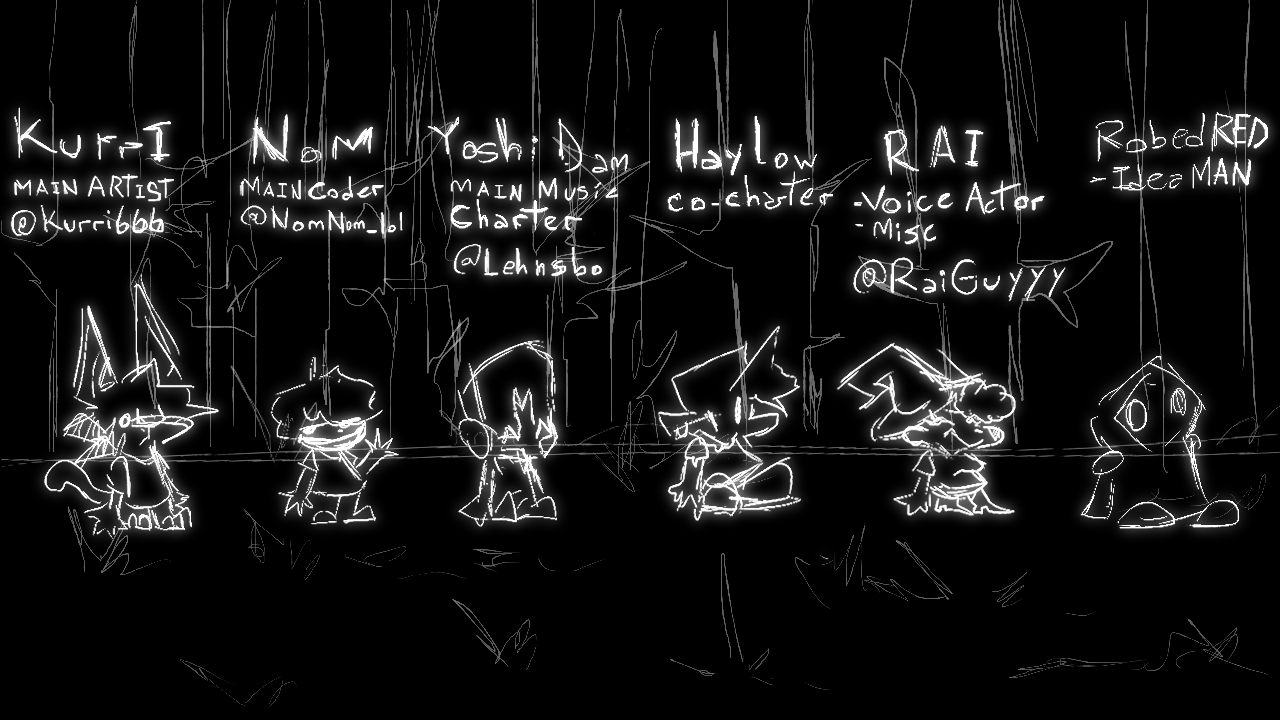 KurrI
MAIN ARTIST
@Kurribbb
NoM
MAIN Coder
@NomNom_lol
Yoshi Dan
MAIN Music
Charter
@Lehnsbo
Haylow
co-charter
RAI
-Voice Actor
-Misc
@RaiGuyyy
RobedRED
-Idea MAN